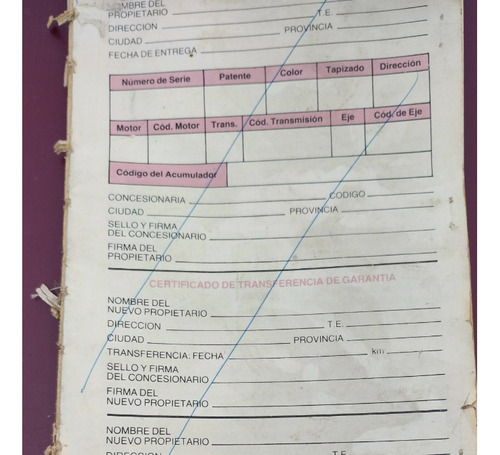 NOMBRE DEL
PROPIETARIO T.E.
DIRECCION PROVINCIA
CIUDAD
FECHA DE ENTREGA
Número de Serie Patente Color Tapizado Dirección
Motor Cód. Motor Trans. Cód. Transmisión Eje Cód. de Eje
Código del Acumulador
CONCESIONARIA CODIGO
CIUDAD PROVINCIA
SELLO Y FIRMA
DEL CONCESIONARIO
FIRMA DEL
PROPIETARIO
CERTIFICADO DE TRANSFERENCIA DE GARANTIA
NOMBRE DEL
NUEVO PROPIETARIO
DIRECCION T.E.
CIUDAD PROVINCIA
TRANSFERENCIA: FECHA km
SELLO Y FIRMA
DEL CONCESIONARIO
FIRMA DEL
NUEVO PROPIETARIO
NOMBRE DEL
NUEVO PROPIETARIO
DIRECCION T.E.